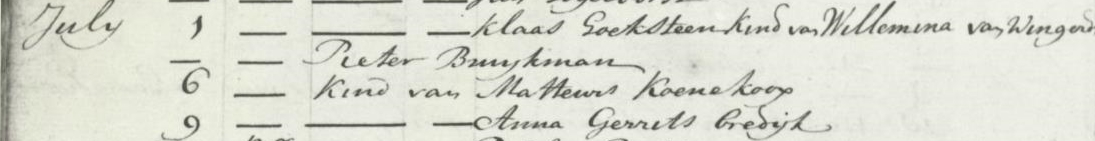 July 1 — — — Klaas Hoeksteen Kind van Willemina van Wingerd
— — Pieter Bruykman
6 — Kind van Mattewis Koenekoop
9 — — — Anna Gerrits bredijk